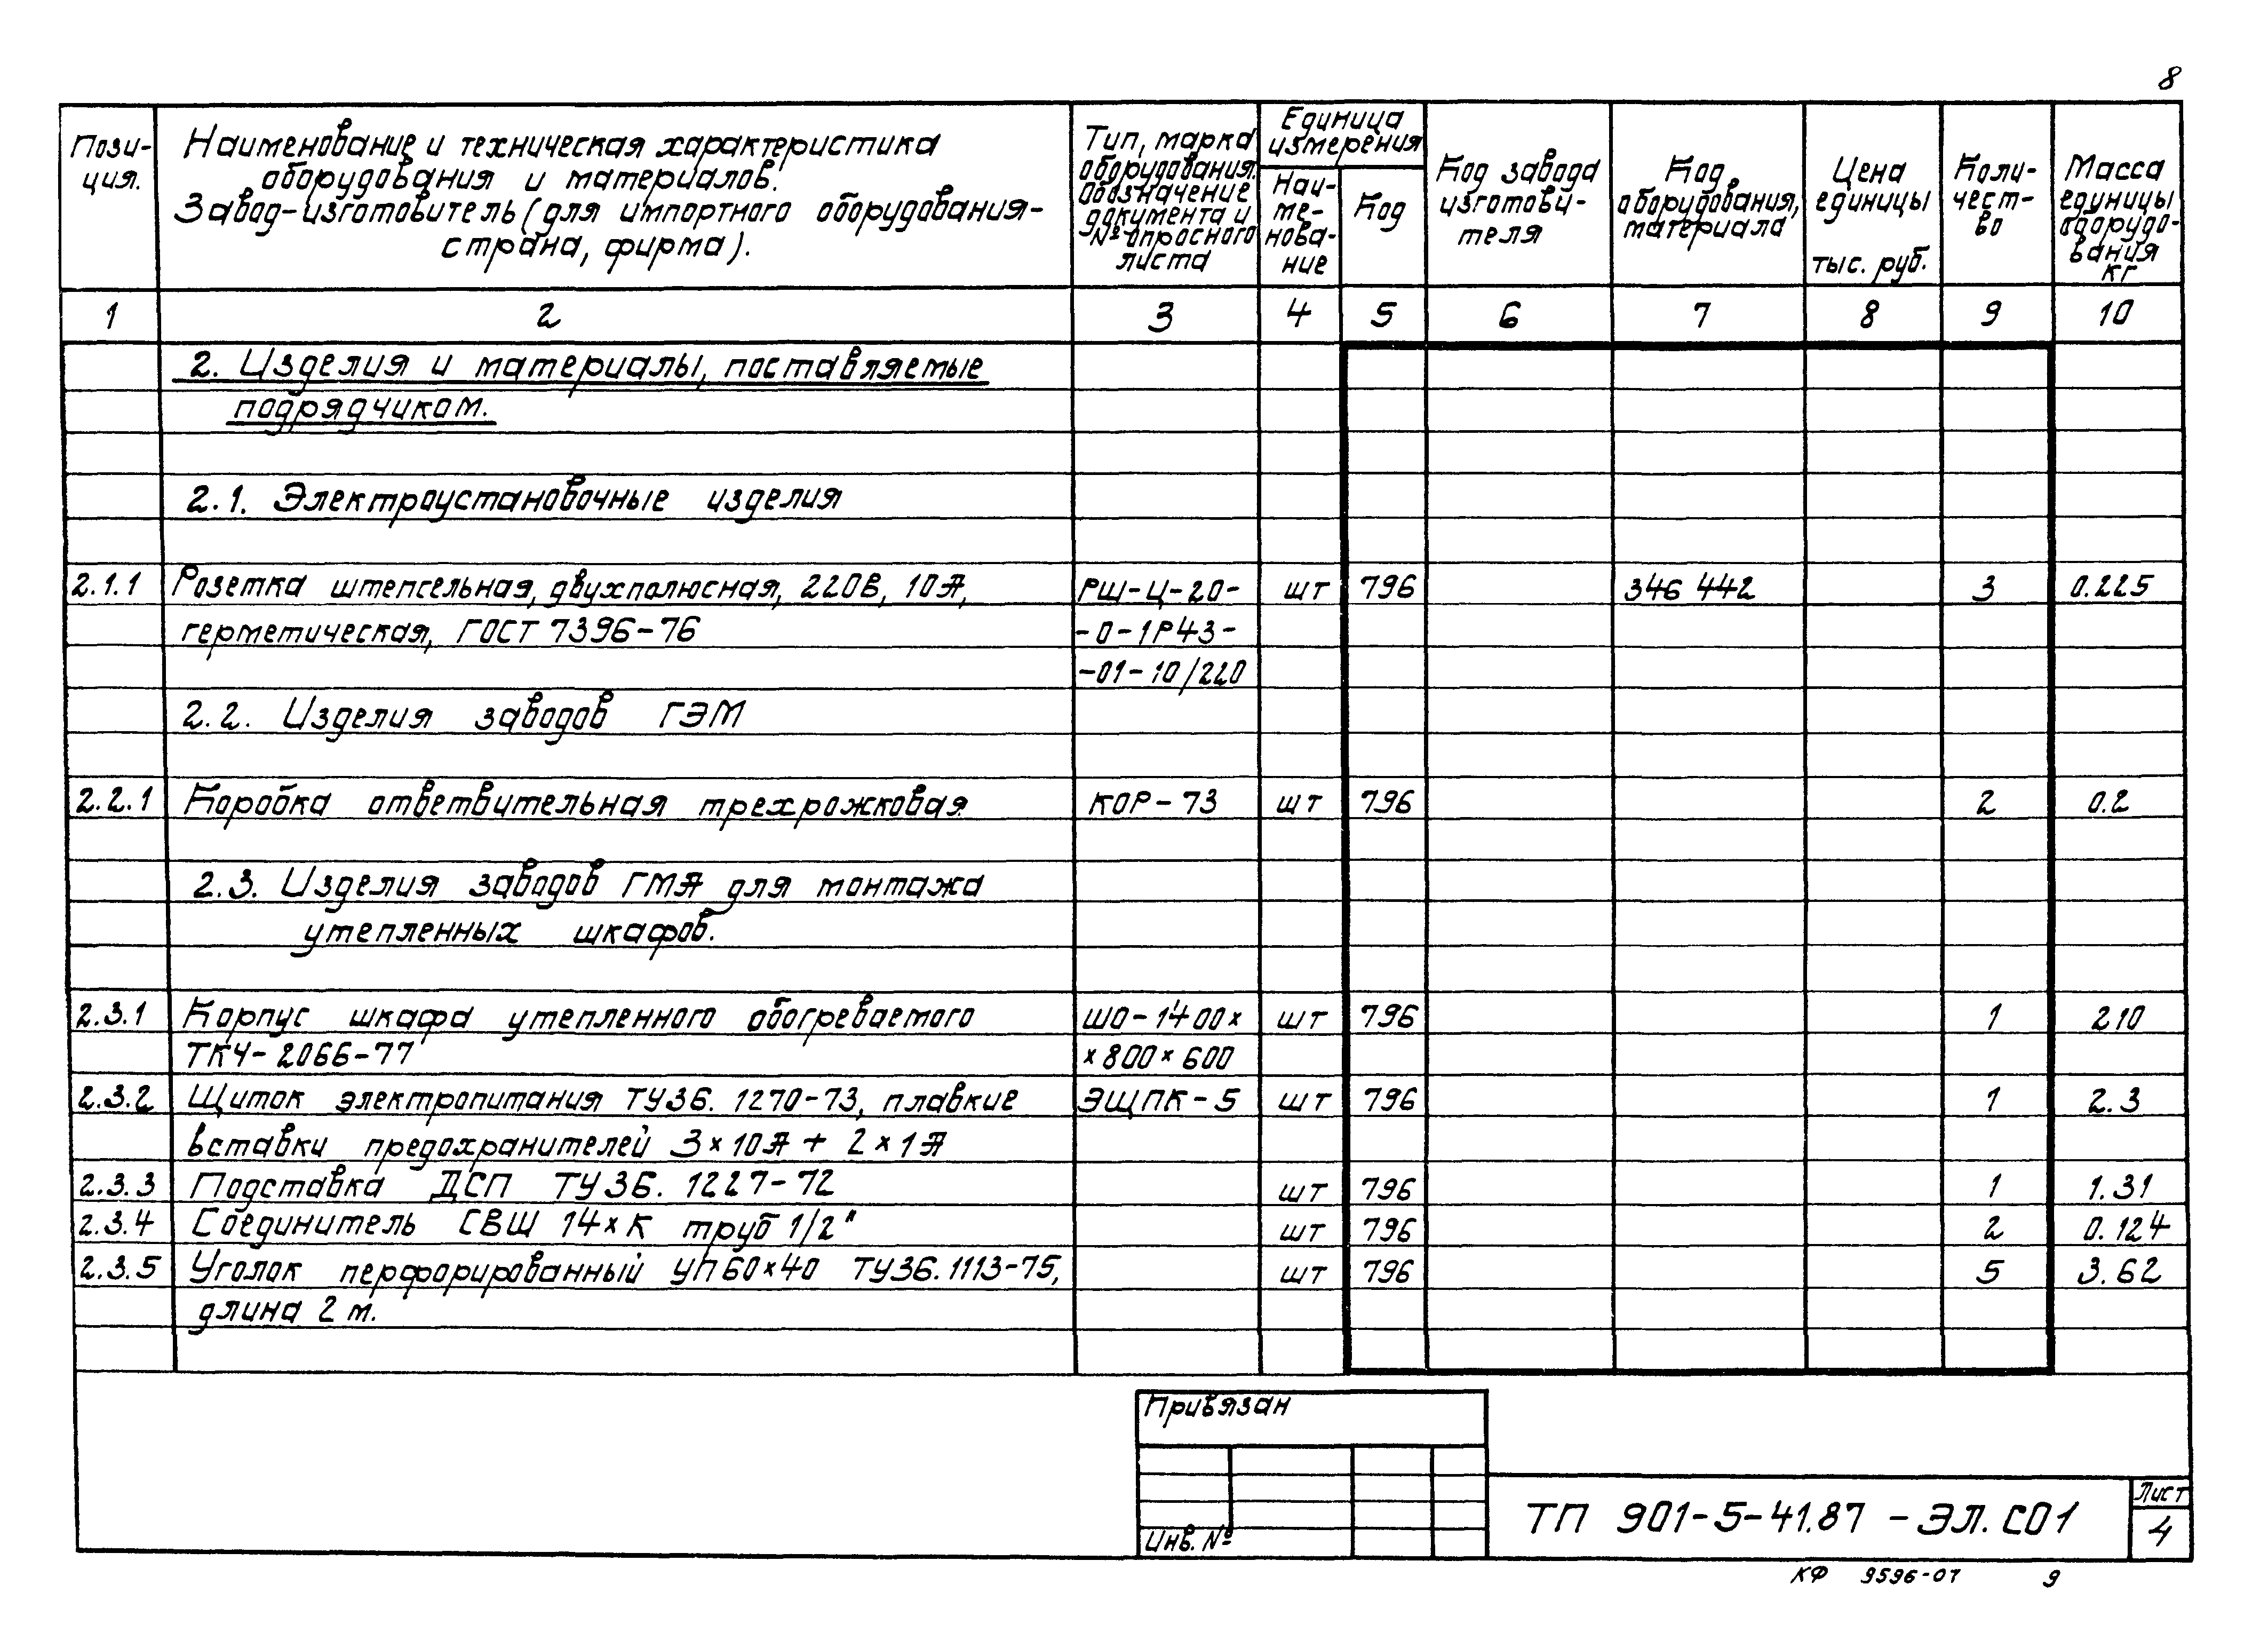 8
Пози-
ция.
Наименование и техническая характеристика
оборудования и материалов.
Завод-изготовитель (для импортного оборудования-
страна, фирма).
Тип, марка
оборудования.
Обозначение
документа и
№ опросного
листа
Единица
измерения
Наи-
ме-
нова-
ние
Код
Код завода
изготови-
теля
Код
оборудования,
материала
Цена
единицы
тыс. руб.
Коли-
чест-
во
Масса
единицы
оборудо-
вания
кг
1 2 3 4 5 6 7 8 9 10
2. Изделия и материалы, поставляемые
подрядчиком.
2.1. Электроустановочные изделия
2.1.1 Розетка штепсельная, двухполюсная, 220В, 10А, РШ-Ц-20- шт 796 346 442 3 0.225
герметическая, ГОСТ 7396-76 -0-1Р43-
-01-10/220
2.2. Изделия заводов ГЭМ
2.2.1 Коробка ответвительная трехрожковая КОР-73 шт 796 2 0.2
2.3. Изделия заводов ГМА для монтажа
утепленных шкафов.
2.3.1 Корпус шкафа утепленного обогреваемого ШО-1400× шт 796 1 210
ТКЧ-2066-77 ×800×600
2.3.2 Щиток электропитания ТУ36. 1270-73, плавкие ЭЩПК-5 шт 796 1 2.3
вставки предохранителей 3×10А + 2×1А
2.3.3 Подставка ДСП ТУ36. 1227-72 шт 796 1 1.31
2.3.4 Соединитель СВШ 14×К труб 1/2" шт 796 2 0.124
2.3.5 Уголок перфорированный УП60×40 ТУ36.1113-75, шт 796 5 3.62
длина 2 м.
Привязан
Инв. №
ТП 901-5-41.87 -ЭЛ.СО1
Лист
4
КФ 9596-07 9